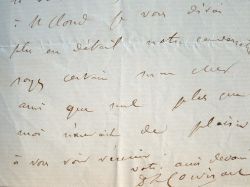 à St Cloud je vous dirai
plus en détail notre
soyez certain mon cher
ami que nul plus que
moi n'aurait de plaisir
à vous voir réussir
votre ami dévoué